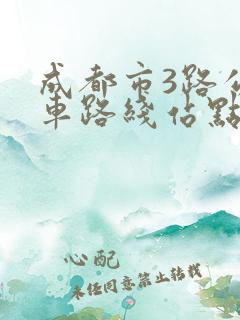 成都市3路公
車路綫佔點
心配
未任同意禁止转载